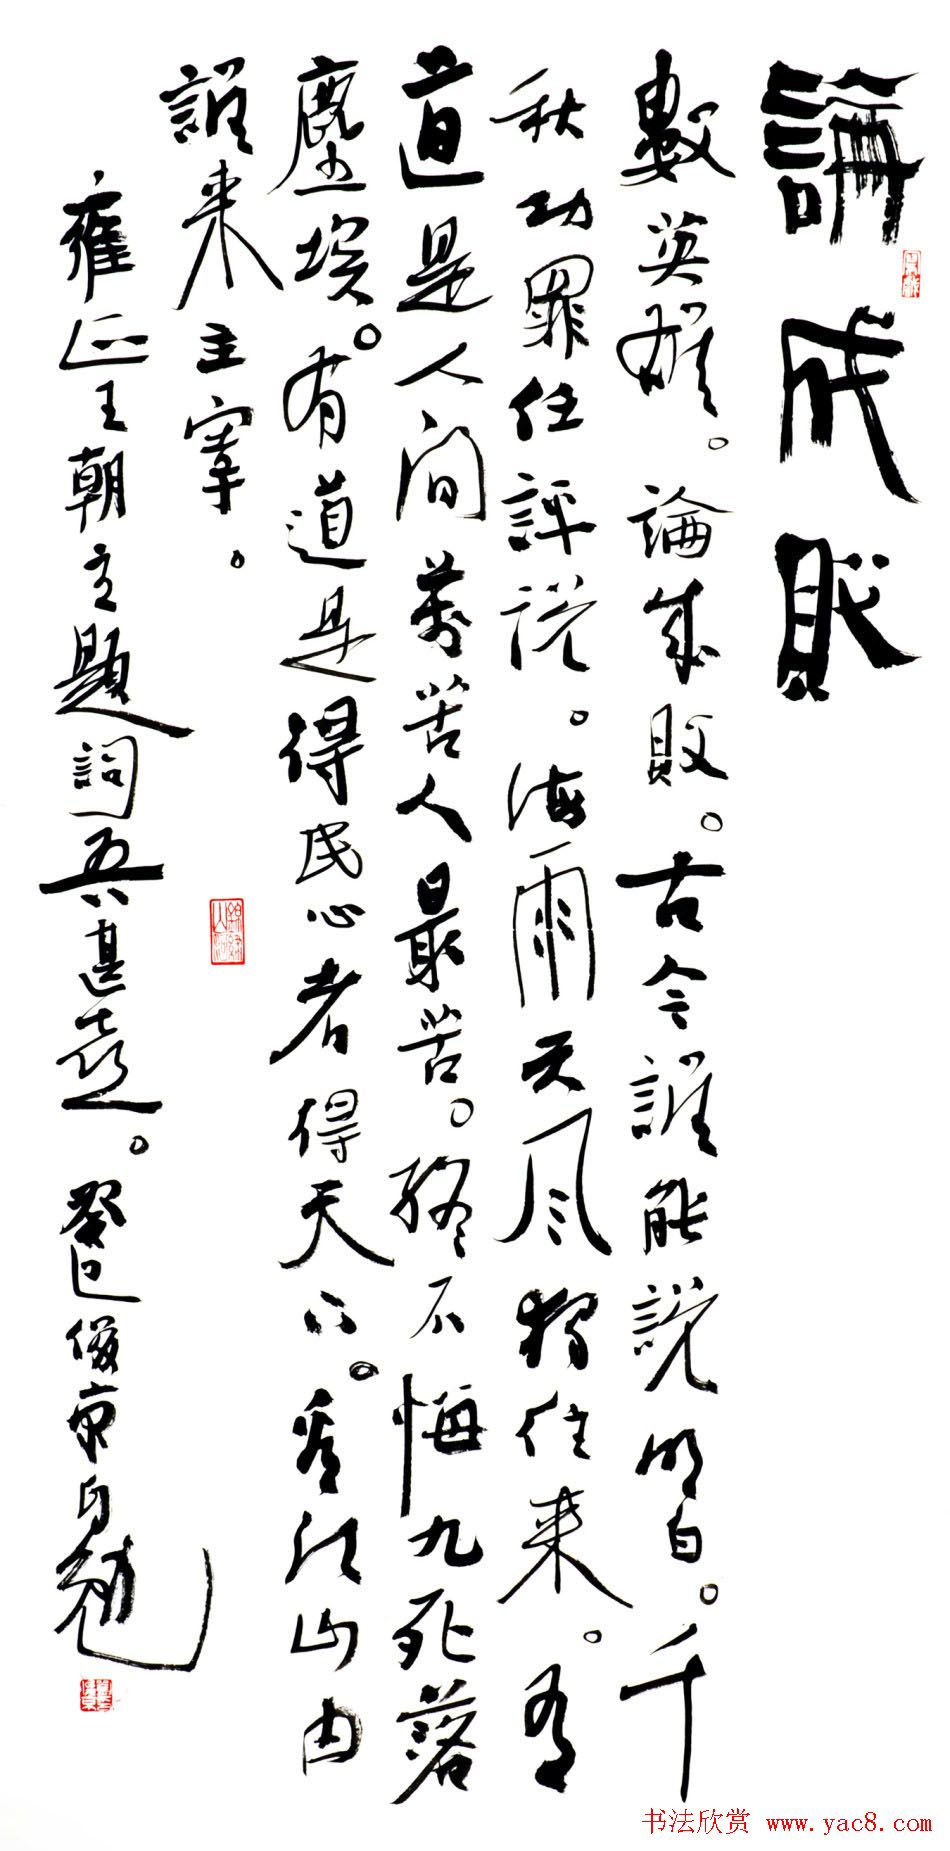 論成敗
數英雄。論成敗。古今誰能說明白。千
秋功罪任評說。海雨天風獨往来。有
道是人間萬苦人最苦。終不悔九死落
塵埃。有道是得民心者得天下。看江山由
誰来主宰。
雍正王朝主題詞吾甚喜。癸巳俊京自勉
书法欣赏 www.yac8.com